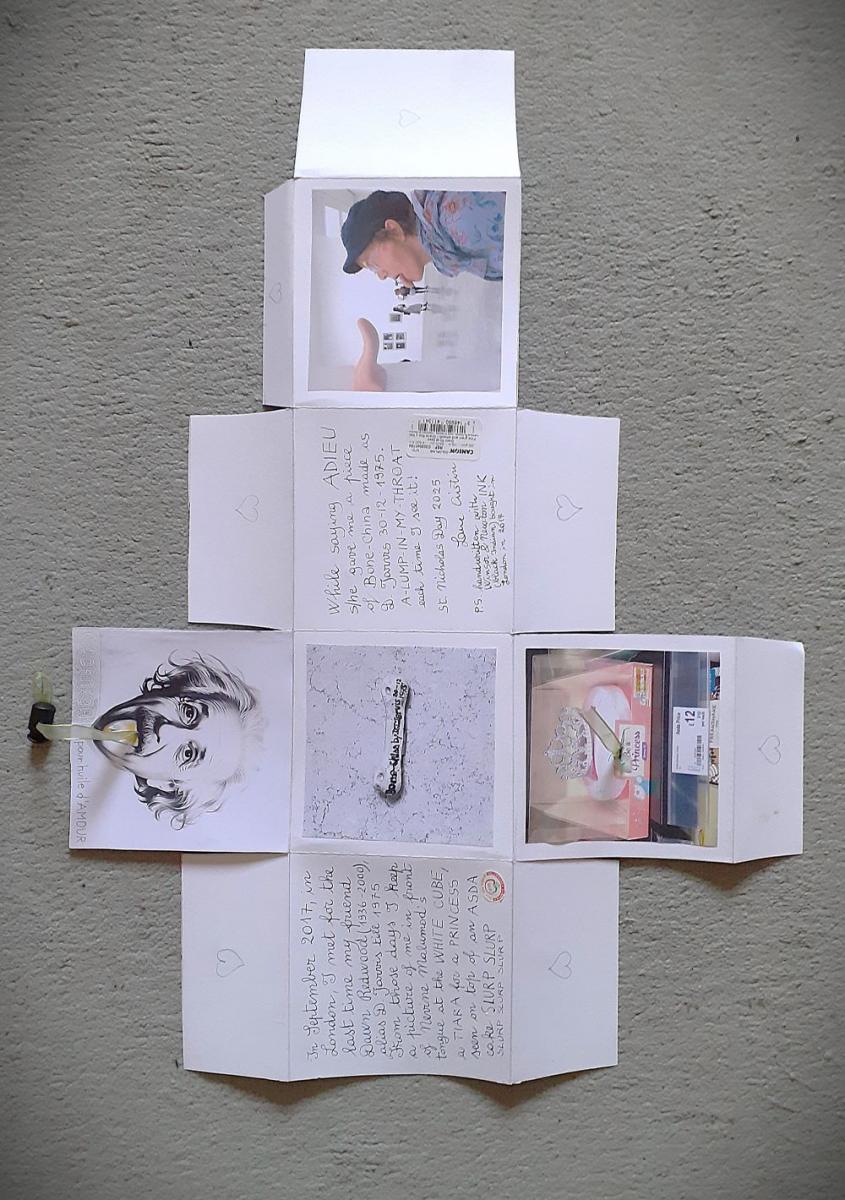 In September 2017, in
London, I met for the
last time my friend
Dawn Redwood (1936-2000)
alias D Jarvis till 1975
From those days I keep
a picture of me in front
of Nerrine Malumod's
tongue at the WHITE CUBE,
a TIARA for a PRINCESS
seen on top of an ASDA
cake SLURP SLURP
SLURP SLURP SLURP
While saying ADIEU
s/he gave me a piece
of Bone-China made as
D. Jarvis 30-12-1975.
A-LUMP-IN-MY-THROAT
each time I see it!
St. Nicholas Day 2025
PS handwritten with
Winsor & Newton INK
(black Indian) bought in
London in 2017
CANSON
pour huile d'AMOUR
Princess
Asda Price
£12